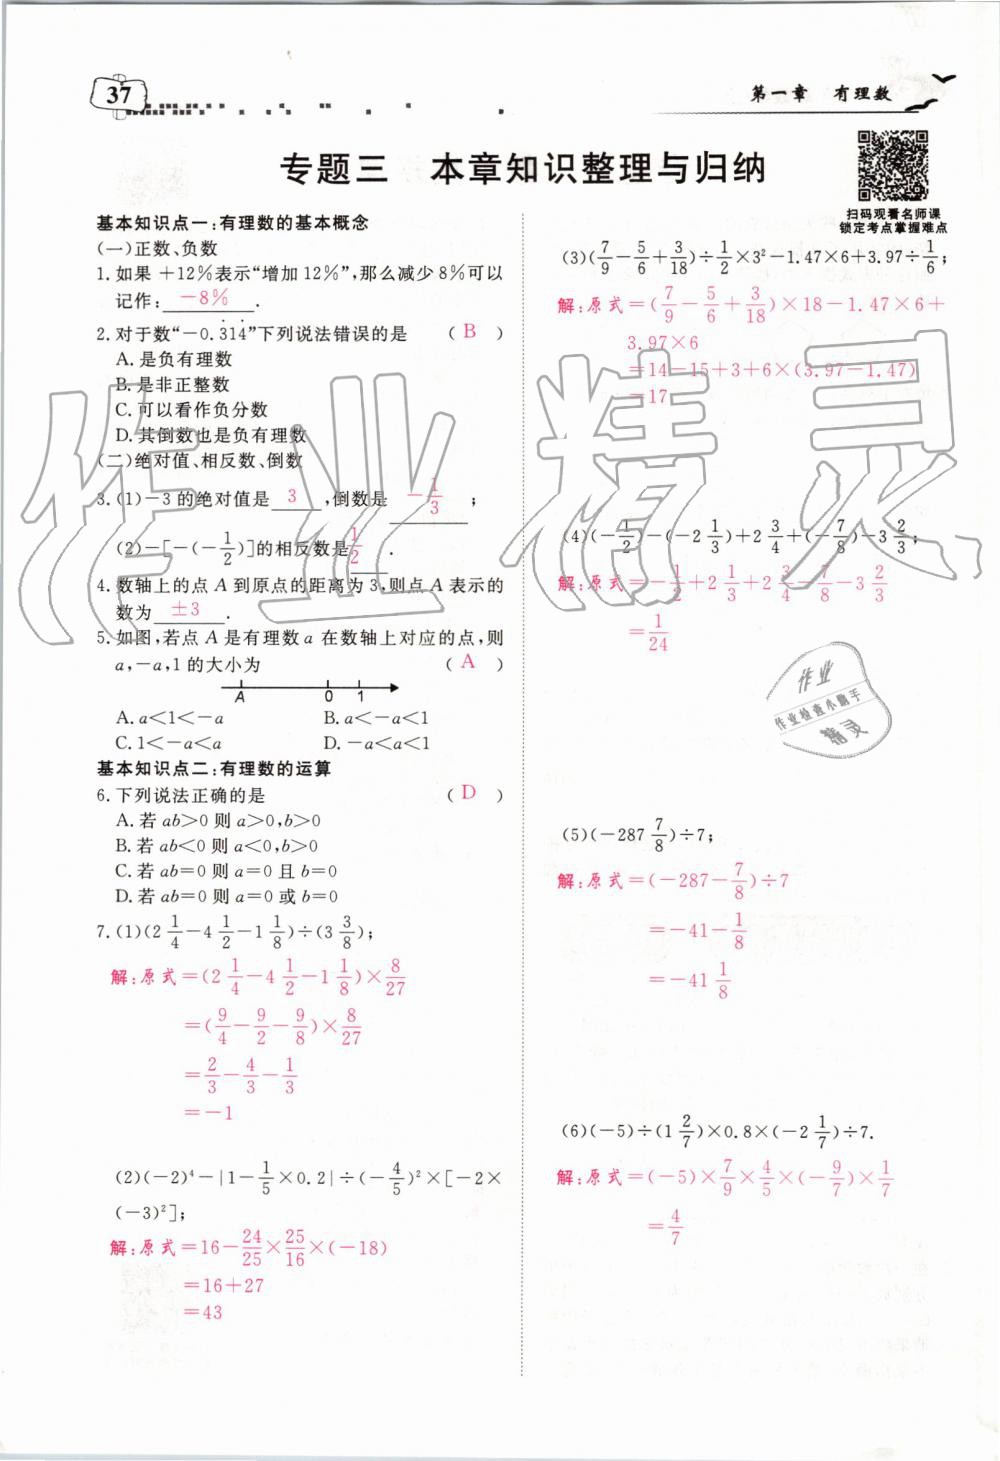 37
第一章 有理数
专题三 本章知识整理与归纳
扫码观看名师课
锁定考点掌握难点
基本知识点一:有理数的基本概念
(一)正数、负数
1.如果+12%表示“增加12%”,那么减少8%可以
记作: -8% .
2.对于数“-0.3̇14̇”下列说法错误的是 ( B )
A.是负有理数
B.是非正整数
C.可以看作负分数
D.其倒数也是负有理数
(二)绝对值、相反数、倒数
3.(1)-3的绝对值是 3 ,倒数是 -1/3 ;
(2)-[-(-1/2)]的相反数是 1/2 .
4.数轴上的点A到原点的距离为3,则点A表示的
数为 ±3 .
5.如图,若点A是有理数a在数轴上对应的点,则
a,-a,1的大小为 ( A )
A 0 1
A.a<1<-a B.a<-a<1
C.1<-a<a D.-a<a<1
基本知识点二:有理数的运算
6.下列说法正确的是 ( D )
A.若ab>0则a>0,b>0
B.若ab<0则a<0,b>0
C.若ab=0则a=0且b=0
D.若ab=0则a=0或b=0
7.(1)(2 1/4-4 1/2-1 1/8)÷(3 3/8);
解:原式=(2 1/4-4 1/2-1 1/8)×8/27
=(9/4-9/2-9/8)×8/27
=2/3-4/3-1/3
=-1
(2)(-2)⁴-|1-1/5×0.2|÷(-4/5)²×[-2×
(-3)²];
解:原式=16-24/25×25/16×(-18)
=16+27
=43
(3)(7/9-5/6+3/18)÷1/2×3²-1.47×6+3.97÷1/6;
解:原式=(7/9-5/6+3/18)×18-1.47×6+
3.97×6
=14-15+3+6×(3.97-1.47)
=17
(4)(-1/2)-(-2 1/3)+2 3/4+(-7/8)-3 2/3;
解:原式=-1/2+2 1/3+2 3/4-7/8-3 2/3
=1/24
(5)(-287 7/8)÷7;
解:原式=(-287-7/8)÷7
=-41-1/8
=-41 1/8
(6)(-5)÷(1 2/7)×0.8×(-2 1/7)÷7.
解:原式=(-5)×7/9×4/5×(-9/7)×1/7
=4/7
作业精灵
作业
作业检查小助手
精灵